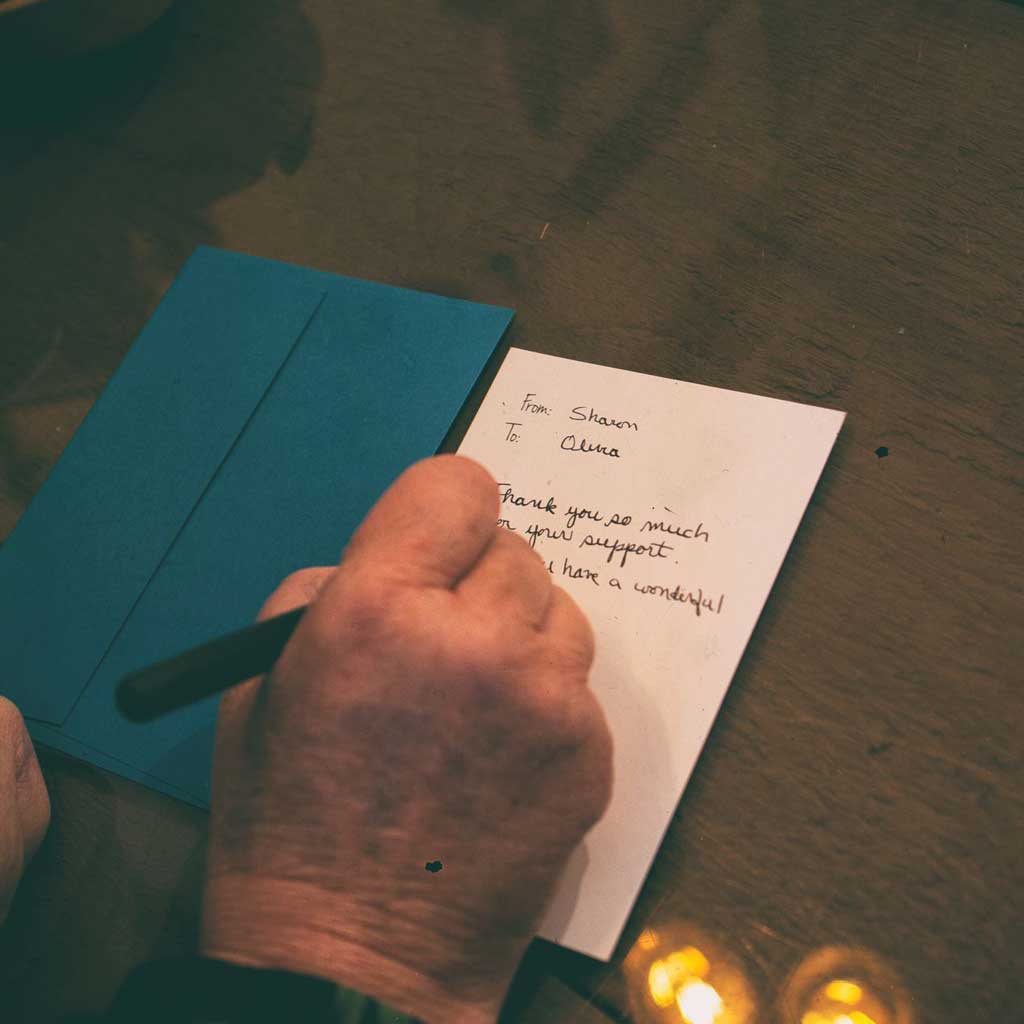 From: Sharon
To: Olivia
Thank you so much
your support.
have a wonderful